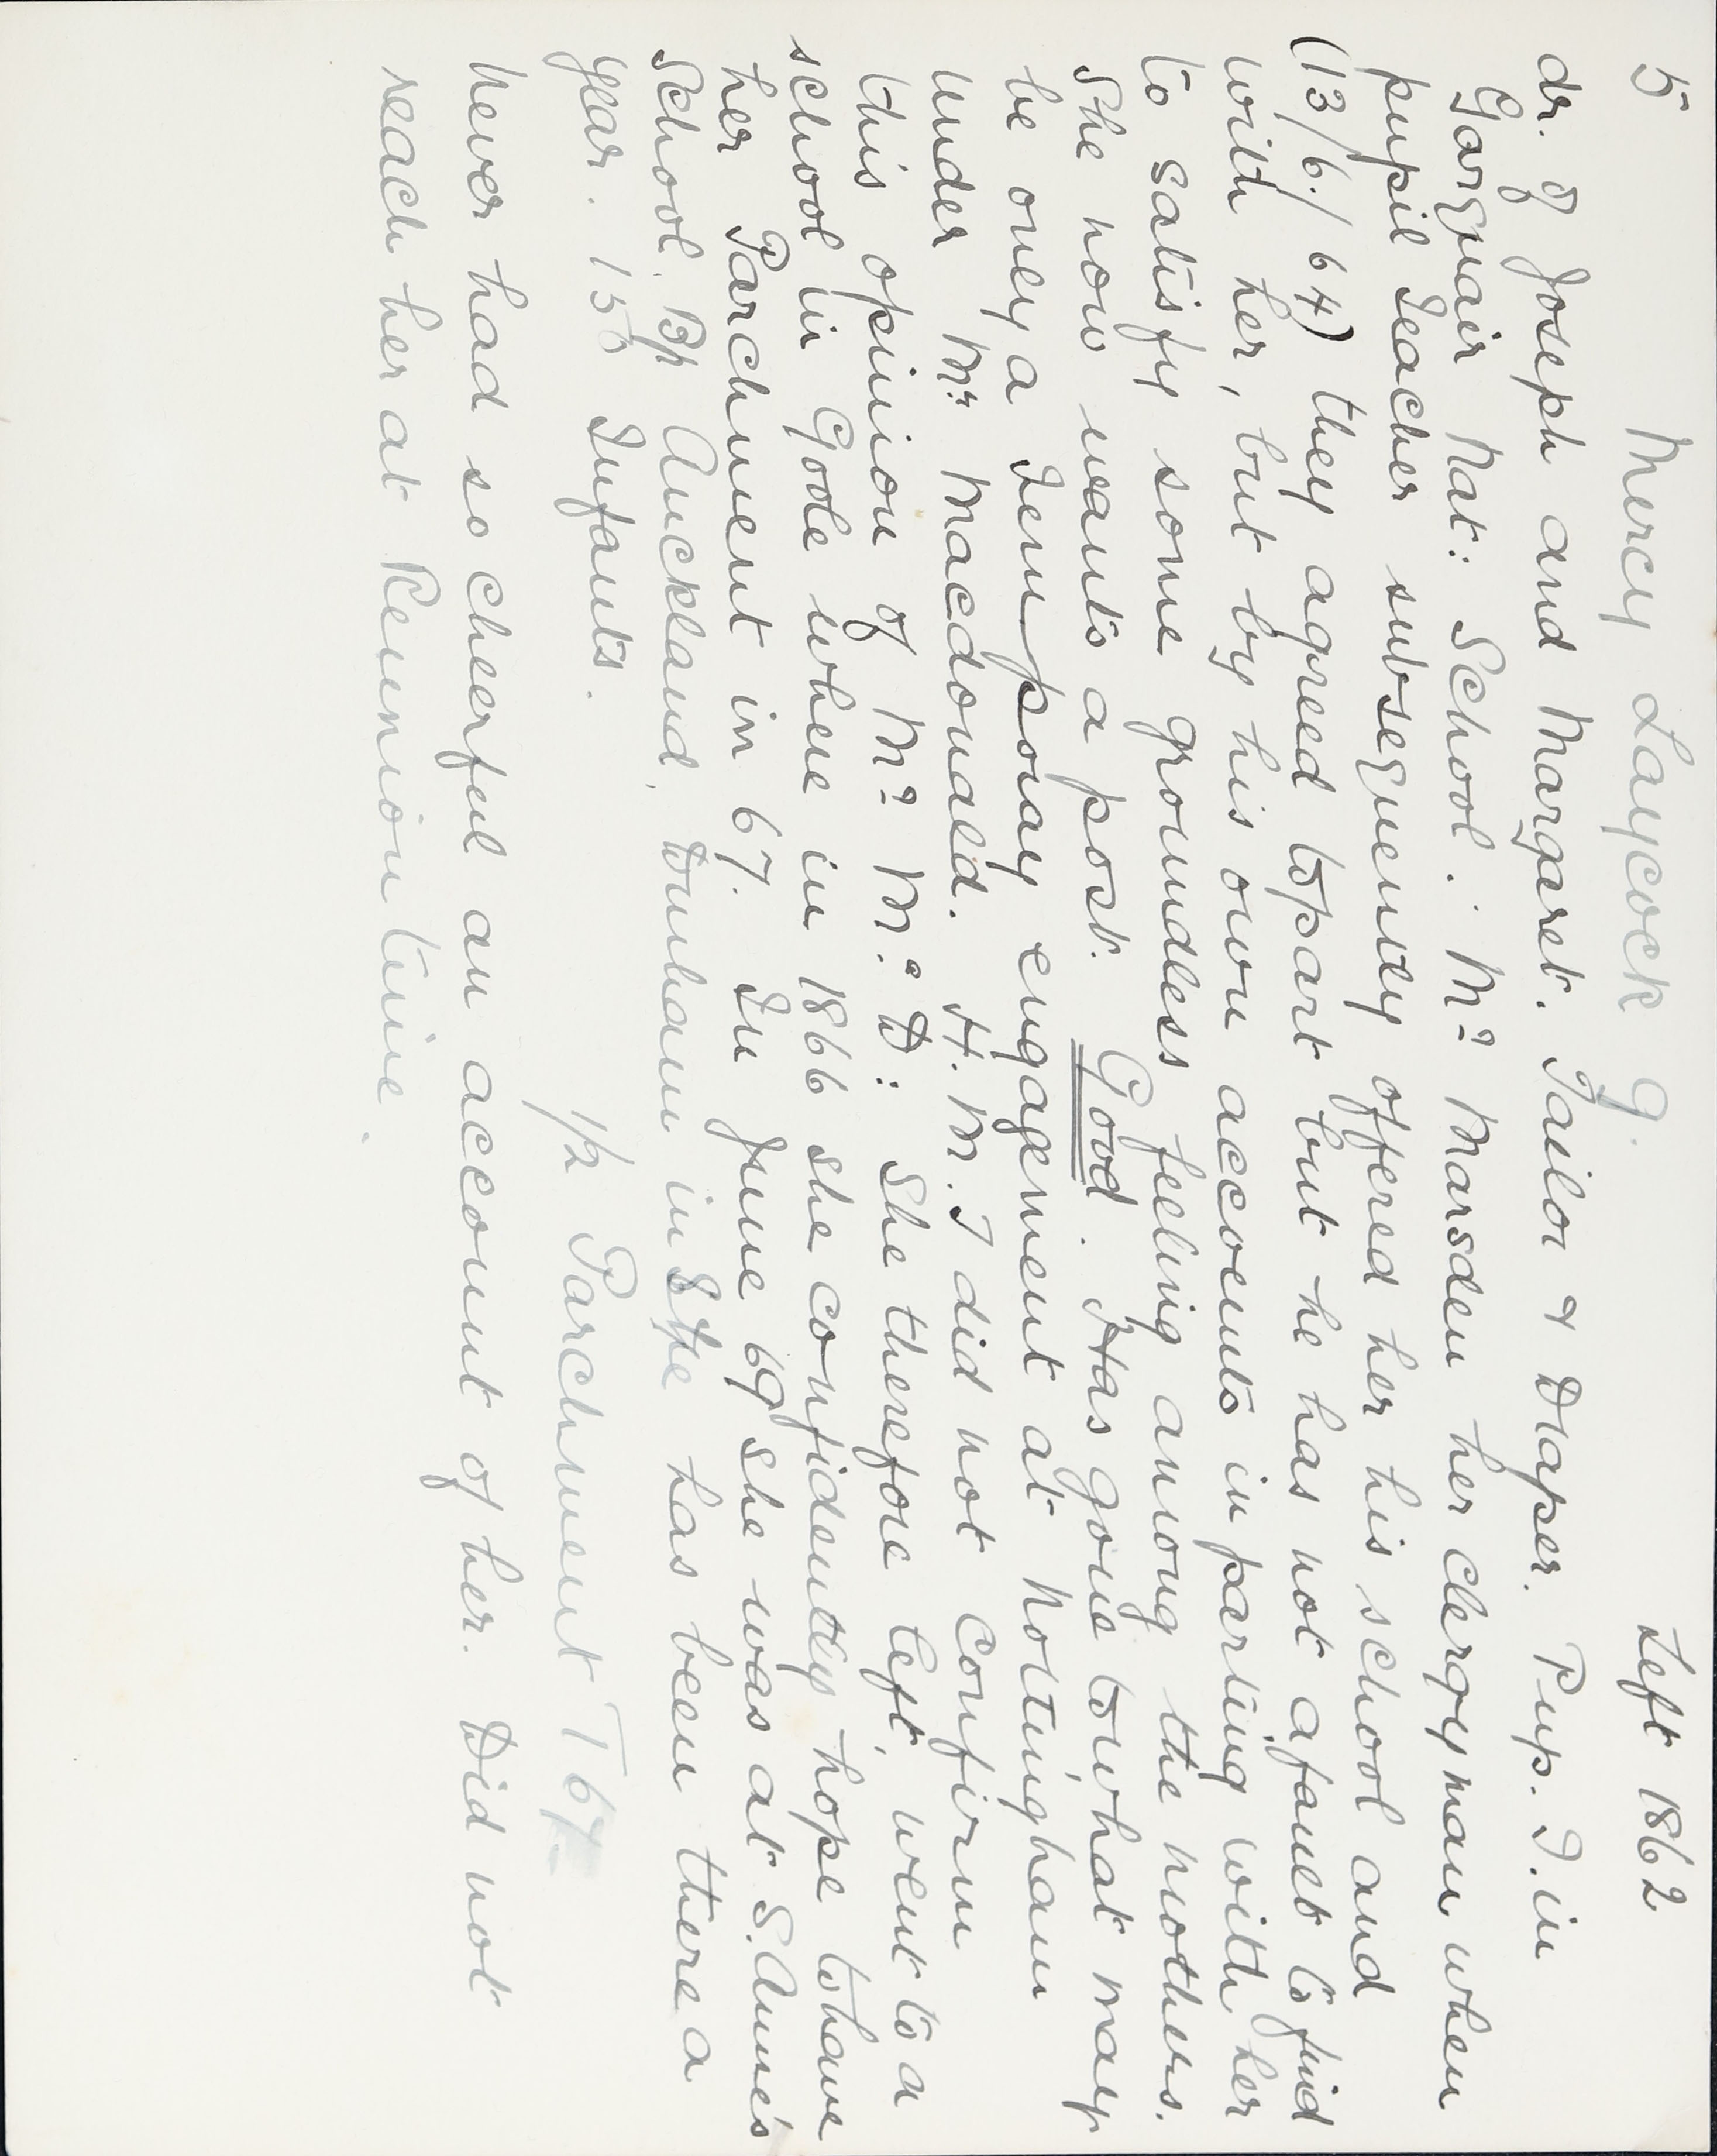 5 Mercy Laycock 9. Left 1862
dr. of Joseph and Margaret. Tailor & Draper. Pup. T. in
Gargrair Nat: School. Mr Marsden her clergyman when
pupil Teacher subsequently offered her his school and
(13/6./64) they agreed to part but he has not afault to find
with her, but by his own accounts in parting with her
to satisfy some groundless feeling among the mothers.
She now wants a post. Good. Has gone to what may
be only a Temporary engagement at Nottingham
under Mrs Macdonald. H.M.I did not confirm
this opinion of Mr Mc D: She therefore left, went to a
school in Goole where in 1866 she confidently hope to have
her Parchment in 67. In June 69 she was at S. Anne's
School. Bp Auckland, Durham in She has been there a
year. 150 Infants.
1/2 Parchment T 67.
Never had so cheerful an account of her. Did not
reach her at Reunion time.